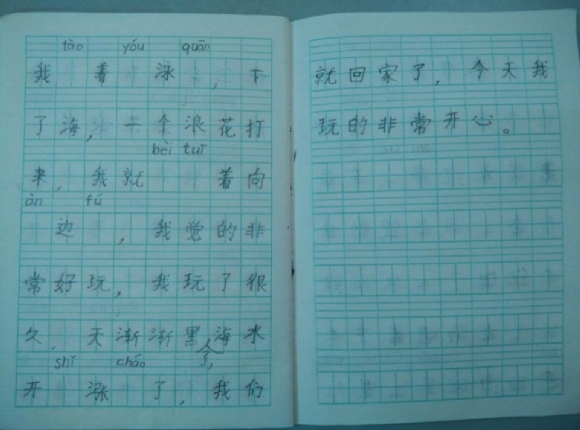 tào yóu quān
我 着 泳 ,下
了海,一个浪花打
bèi tuī
来,我就 着向
àn fú
边 ,我觉的非
常好玩,我玩了很
久,天渐渐黑了,海水
shǐ cháo
开 涨 了,我们
就回家了,今天我
玩的非常开心。